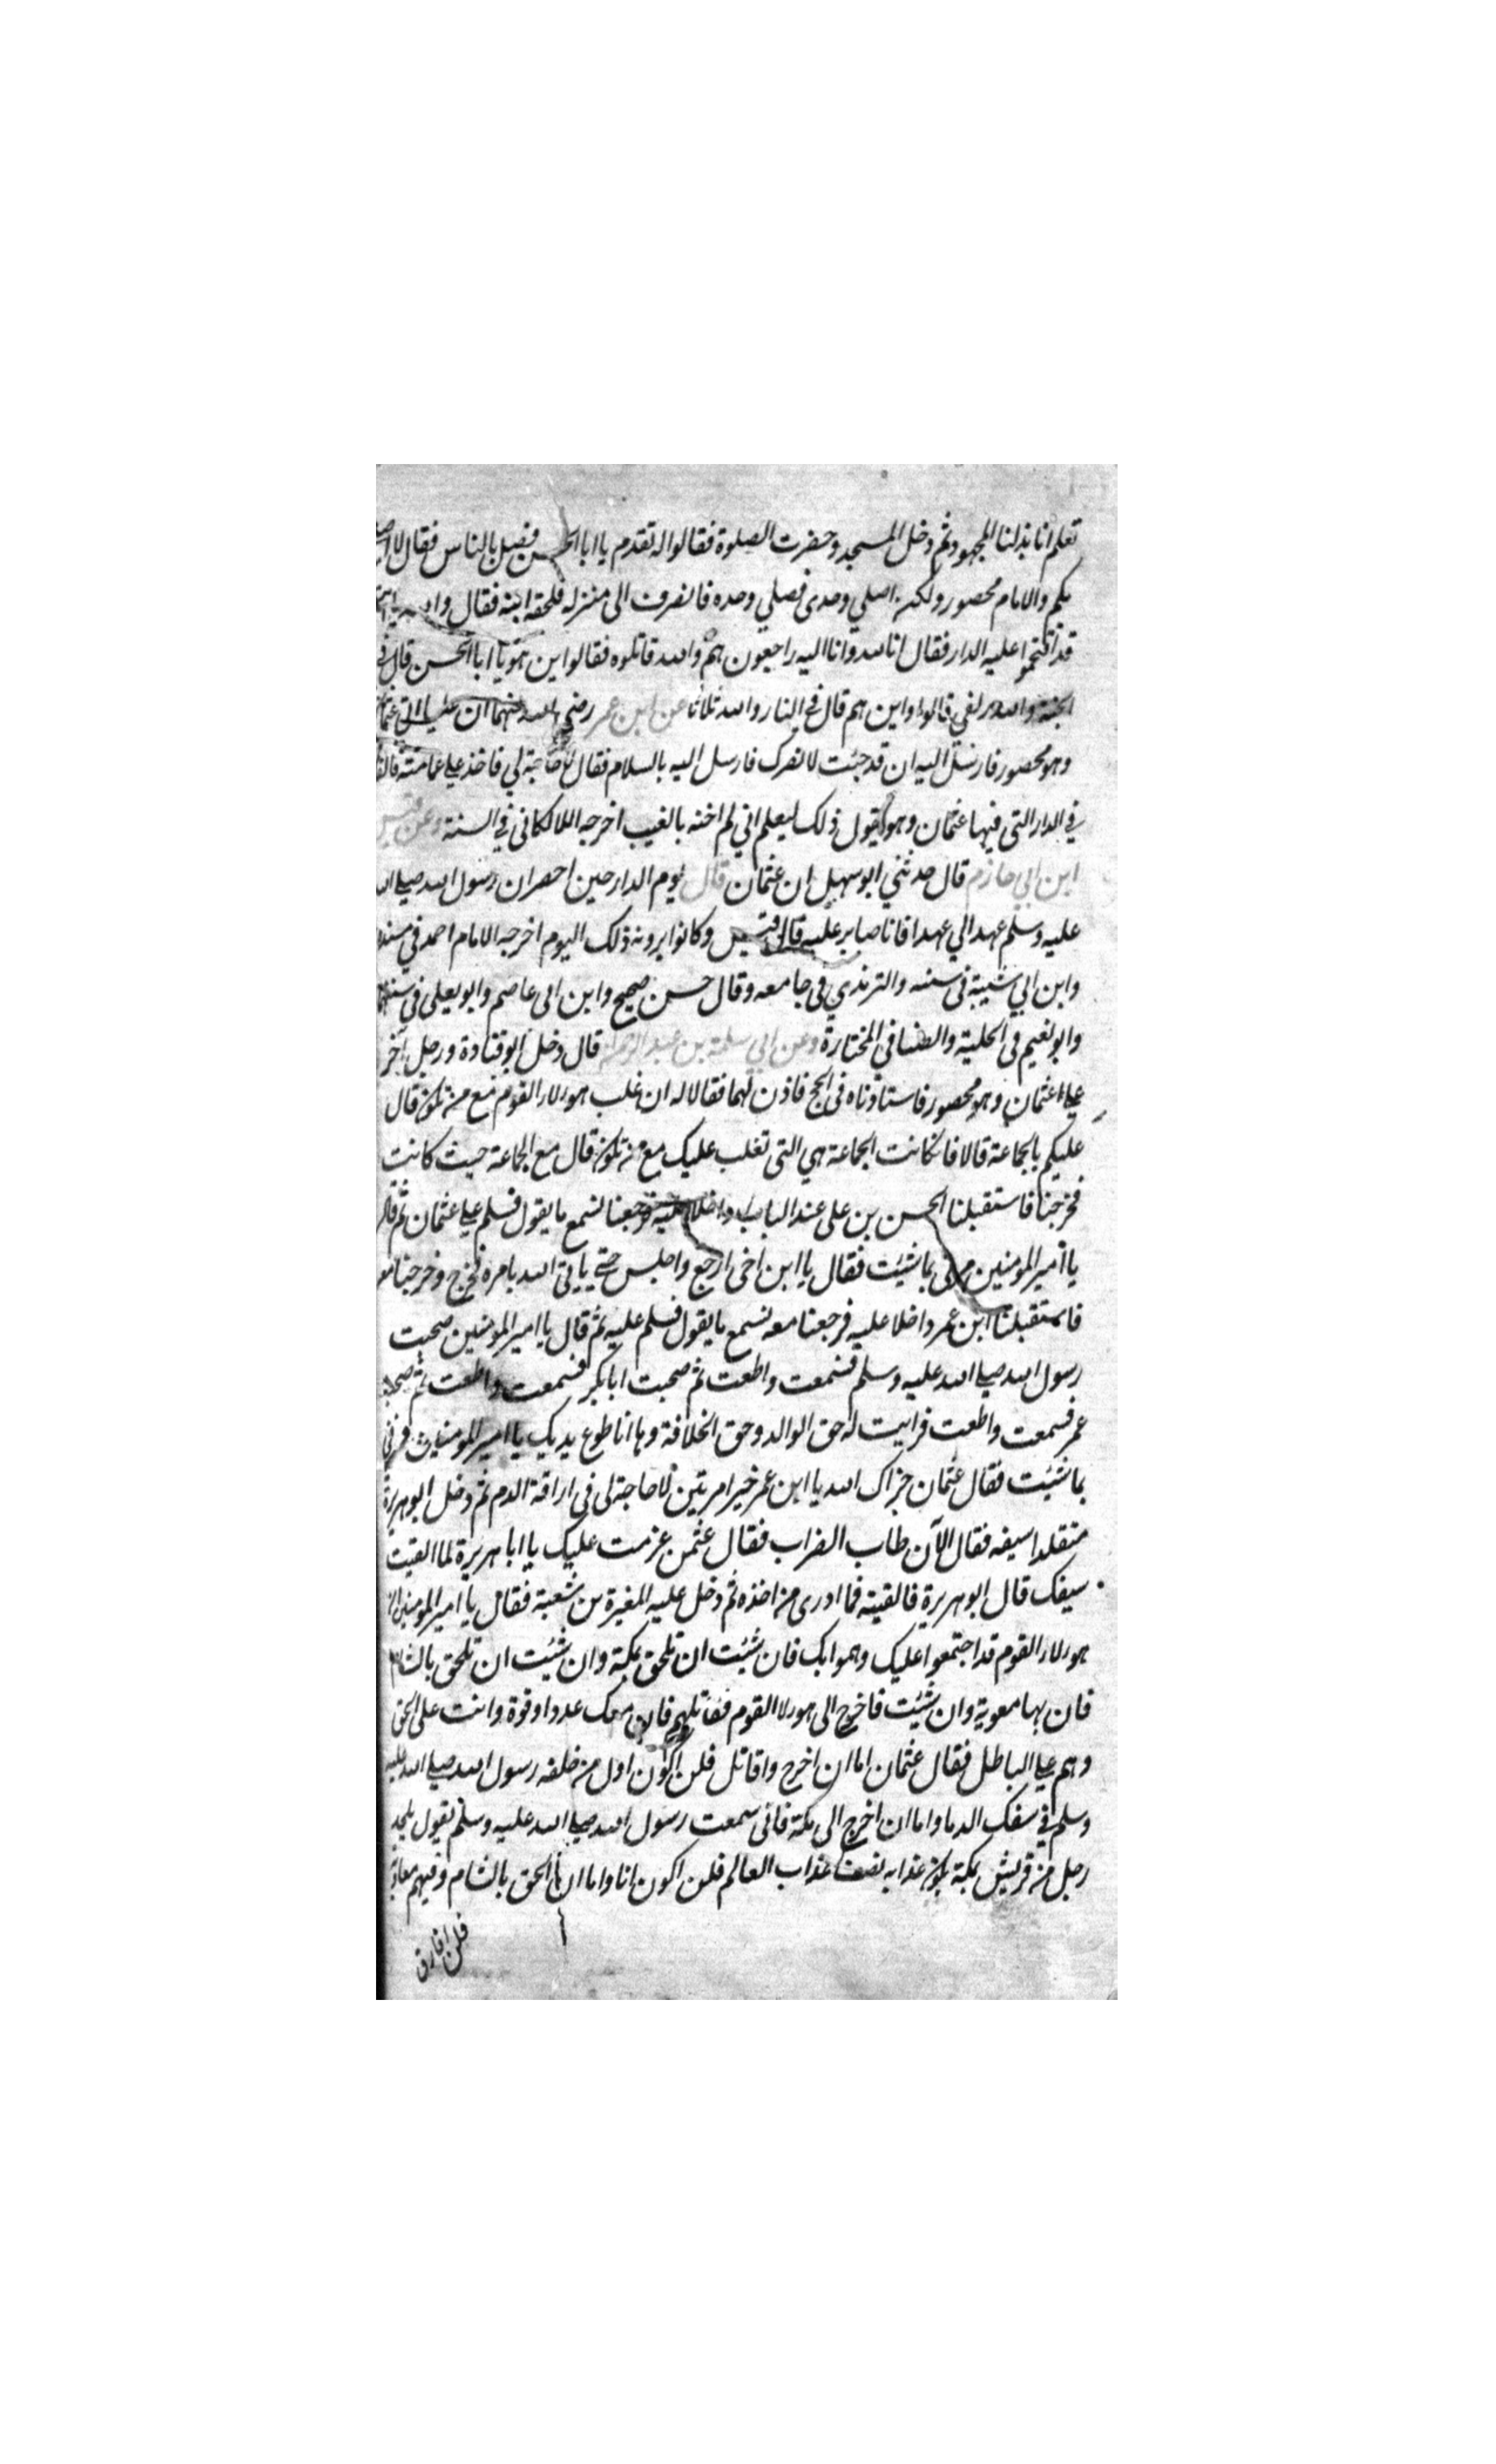 تعلم انا بذلنا المجهود ثم دخل المسجد وحضرت الصلوة فقالوا له تقدم يا ابا الحسن فصل بالناس فقال لا اصلي
بكم والامام محصور ولكن اصلي وحدى فصلي وحده فانصرف الى منزله فلحقه ابنه فقال والله يا ابت
قد اقتحموا عليه الدار فقال انا لله وانا اليه راجعون هم والله قاتلوه فقالوا اين هو يا ابا الحسن قال في
الجنة والله زلفي قالوا واين هم قال في النار والله ثلاثا عن ابن عمر رضي الله عنهما ان عليا اتى عثمان
وهو محصور فارسل اليه ان قد جئت لانصرك فارسل اليه بالسلام فقال لا حاجة لي فاخذ علي عمامته فالقا
في الدار التى فيها عثمان وهو يقول ذلك ليعلم اني لم اخنه بالغيب اخرجه اللالكانى في السنة وعن قيس
ابن ابي حازم قال حدثني ابو سهل ان عثمان قال يوم الدار حين احصر ان رسول الله صلى الله
عليه وسلم عهد الي عهدا فانا صابر عليه قال قيس وكانوا يرونه ذلك اليوم اخرجه الامام احمد في مسنده
وابن ابي شيبة فى سننه والترمذي في جامعه وقال حسن صحيح وابن ابى عاصم وابو يعلى في سننهما
وابو نعيم فى الحلية والضيا في المختارة وعن ابي سلمة بن عبد الرحمن قال دخل ابو قتادة ورجل آخر
على عثمان وهو محصور فاستاذناه فى الحج فاذن لهما فقالا له ان غلب هولاء القوم مع من نكون قال
عليكم بالجماعة قالا فان كانت الجماعة هي التى تغلب عليك مع من نكون قال مع الجماعة حيث كانت
فخرجنا فاستقبلنا الحسن بن على عند الباب داخلا عليه فرجعنا لنسمع ما يقول فسلم على عثمان ثم قال
يا أمير المومنين مرنى بما شيئت فقال يا ابن اخى ارجع واجلس حتى ياتى الله بامره فخرج وخرجنا معه
فاستقبلنا ابن عمر داخلا عليه فرجعنا معه نسمع ما يقول فسلم عليه ثم قال يا امير المومنين صحبت
رسول الله صلى الله عليه وسلم فسمعت واطعت ثم صحبت ابا بكر فسمعت واطعت ثم صحبت
عمر فسمعت واطعت فرايت له حق الوالد وحق الخلافة وها انا طوع يديك يا امير المومنين فمرنى
بما شئيت فقال عثمان جزاك الله يا ابن عمر خيرا مرتين لا حاجة لى فى اراقة الدم ثم دخل ابو هريرة
متقلدا سيفه فقال الآن طاب الضراب فقال عثمن عزمت عليك يا ابا هريرة لما القيت
سيفك قال ابو هريرة فالقيته فما ادرى من اخذه ثم دخل عليه المغيرة بن شعبة فقال يا امير المومنين ان
هولاء القوم قد اجتمعوا عليك وهموا بك فان شئت ان تلحق بمكة وان شئيت ان تلحق بالشام
فان بها معوية وان شئيت فاخرج الى هولا القوم فقاتلهم فان معك عددا وقوة وانت على الحق
وهم على الباطل فقال عثمان اما ان اخرج واقاتل فلن اكون اول من خلفه رسول الله صلى الله عليه
وسلم في سفك الدما واما ان اخرج الى مكة فانى سمعت رسول الله صلى الله عليه وسلم يقول يلحد
رجل من قريش بمكة يكون عذابه نصف عذاب العالم فلن اكون انا واما ان الحق بالشام وفيهم معاوية
فلن افارق